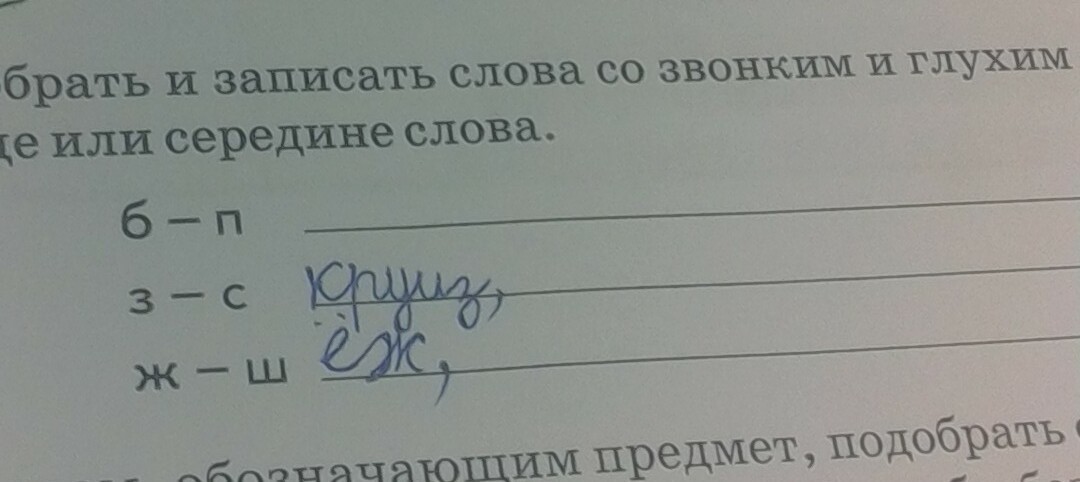 брать и записать слова со звонким и глухим
це или середине слова.
б – п
з – с круиз,
ж – ш ёж,
обозначающим предмет, подобрать